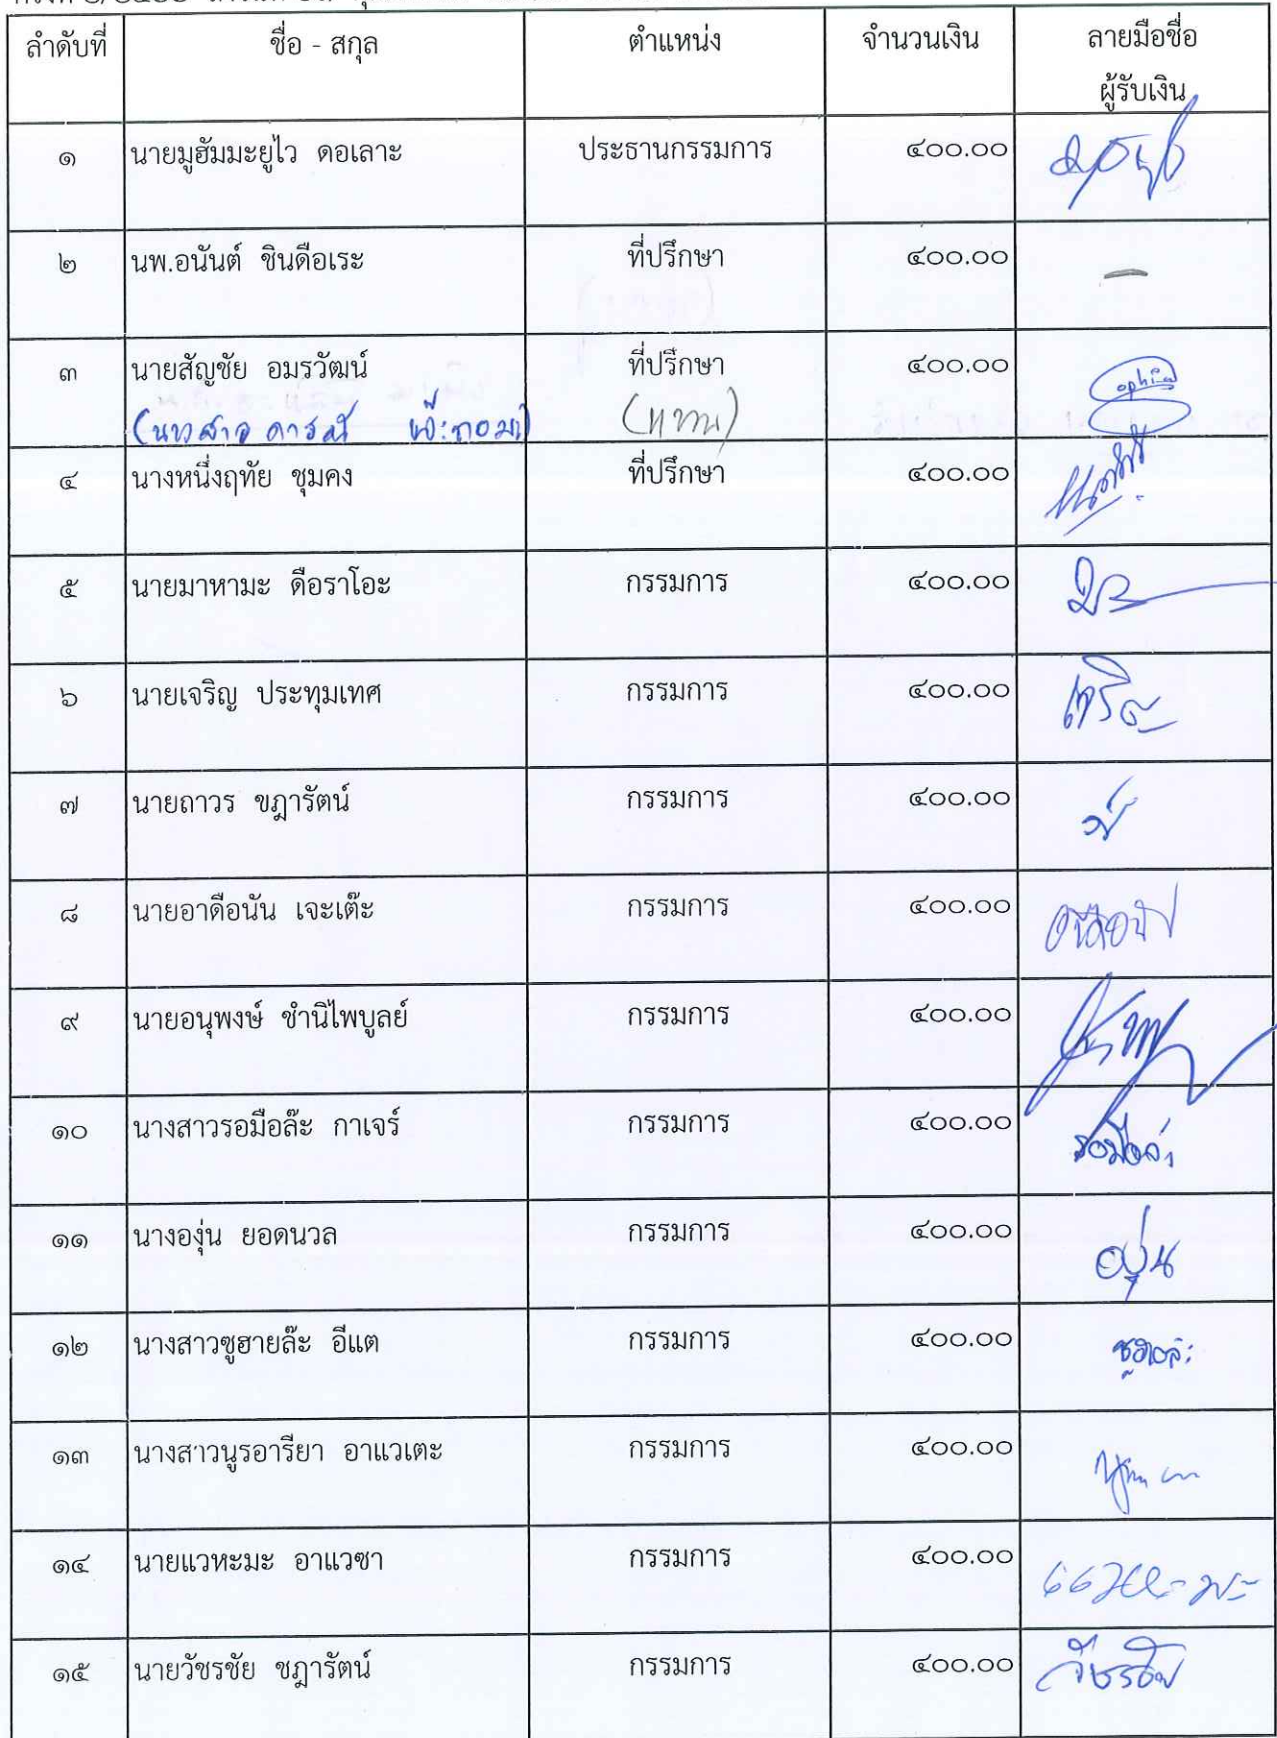 ลำดับที่ ชื่อ - สกุล ตำแหน่ง จำนวนเงิน ลายมือชื่อ
ผู้รับเงิน
๑ นายมูฮัมมะยูไว ดอเลาะ ประธานกรรมการ ๔๐๐.๐๐
๒ นพ.อนันต์ ชินดือเระ ที่ปรึกษา ๔๐๐.๐๐ –
๓ นายสัญชัย อมรวัฒน์ ที่ปรึกษา ๔๐๐.๐๐
(นางสาว (แทน)
๔ นางหนึ่งฤทัย ชุมคง ที่ปรึกษา ๔๐๐.๐๐
๕ นายมาหามะ ดือราโอะ กรรมการ ๔๐๐.๐๐
๖ นายเจริญ ประทุมเทศ กรรมการ ๔๐๐.๐๐ เจริญ
๗ นายถาวร ขฎารัตน์ กรรมการ ๔๐๐.๐๐
๘ นายอาดือนัน เจะเต๊ะ กรรมการ ๔๐๐.๐๐
๙ นายอนุพงษ์ ชำนิไพบูลย์ กรรมการ ๔๐๐.๐๐
๑๐ นางสาวรอมือล๊ะ กาเจร์ กรรมการ ๔๐๐.๐๐
๑๑ นางองุ่น ยอดนวล กรรมการ ๔๐๐.๐๐ องุ่น
๑๒ นางสาวซูฮายล๊ะ อีแต กรรมการ ๔๐๐.๐๐
๑๓ นางสาวนูรอารียา อาแวเตะ กรรมการ ๔๐๐.๐๐
๑๔ นายแวหะมะ อาแวซา กรรมการ ๔๐๐.๐๐ แวหะมะ
๑๕ นายวัชรชัย ชฎารัตน์ กรรมการ ๔๐๐.๐๐ วัชรชัย